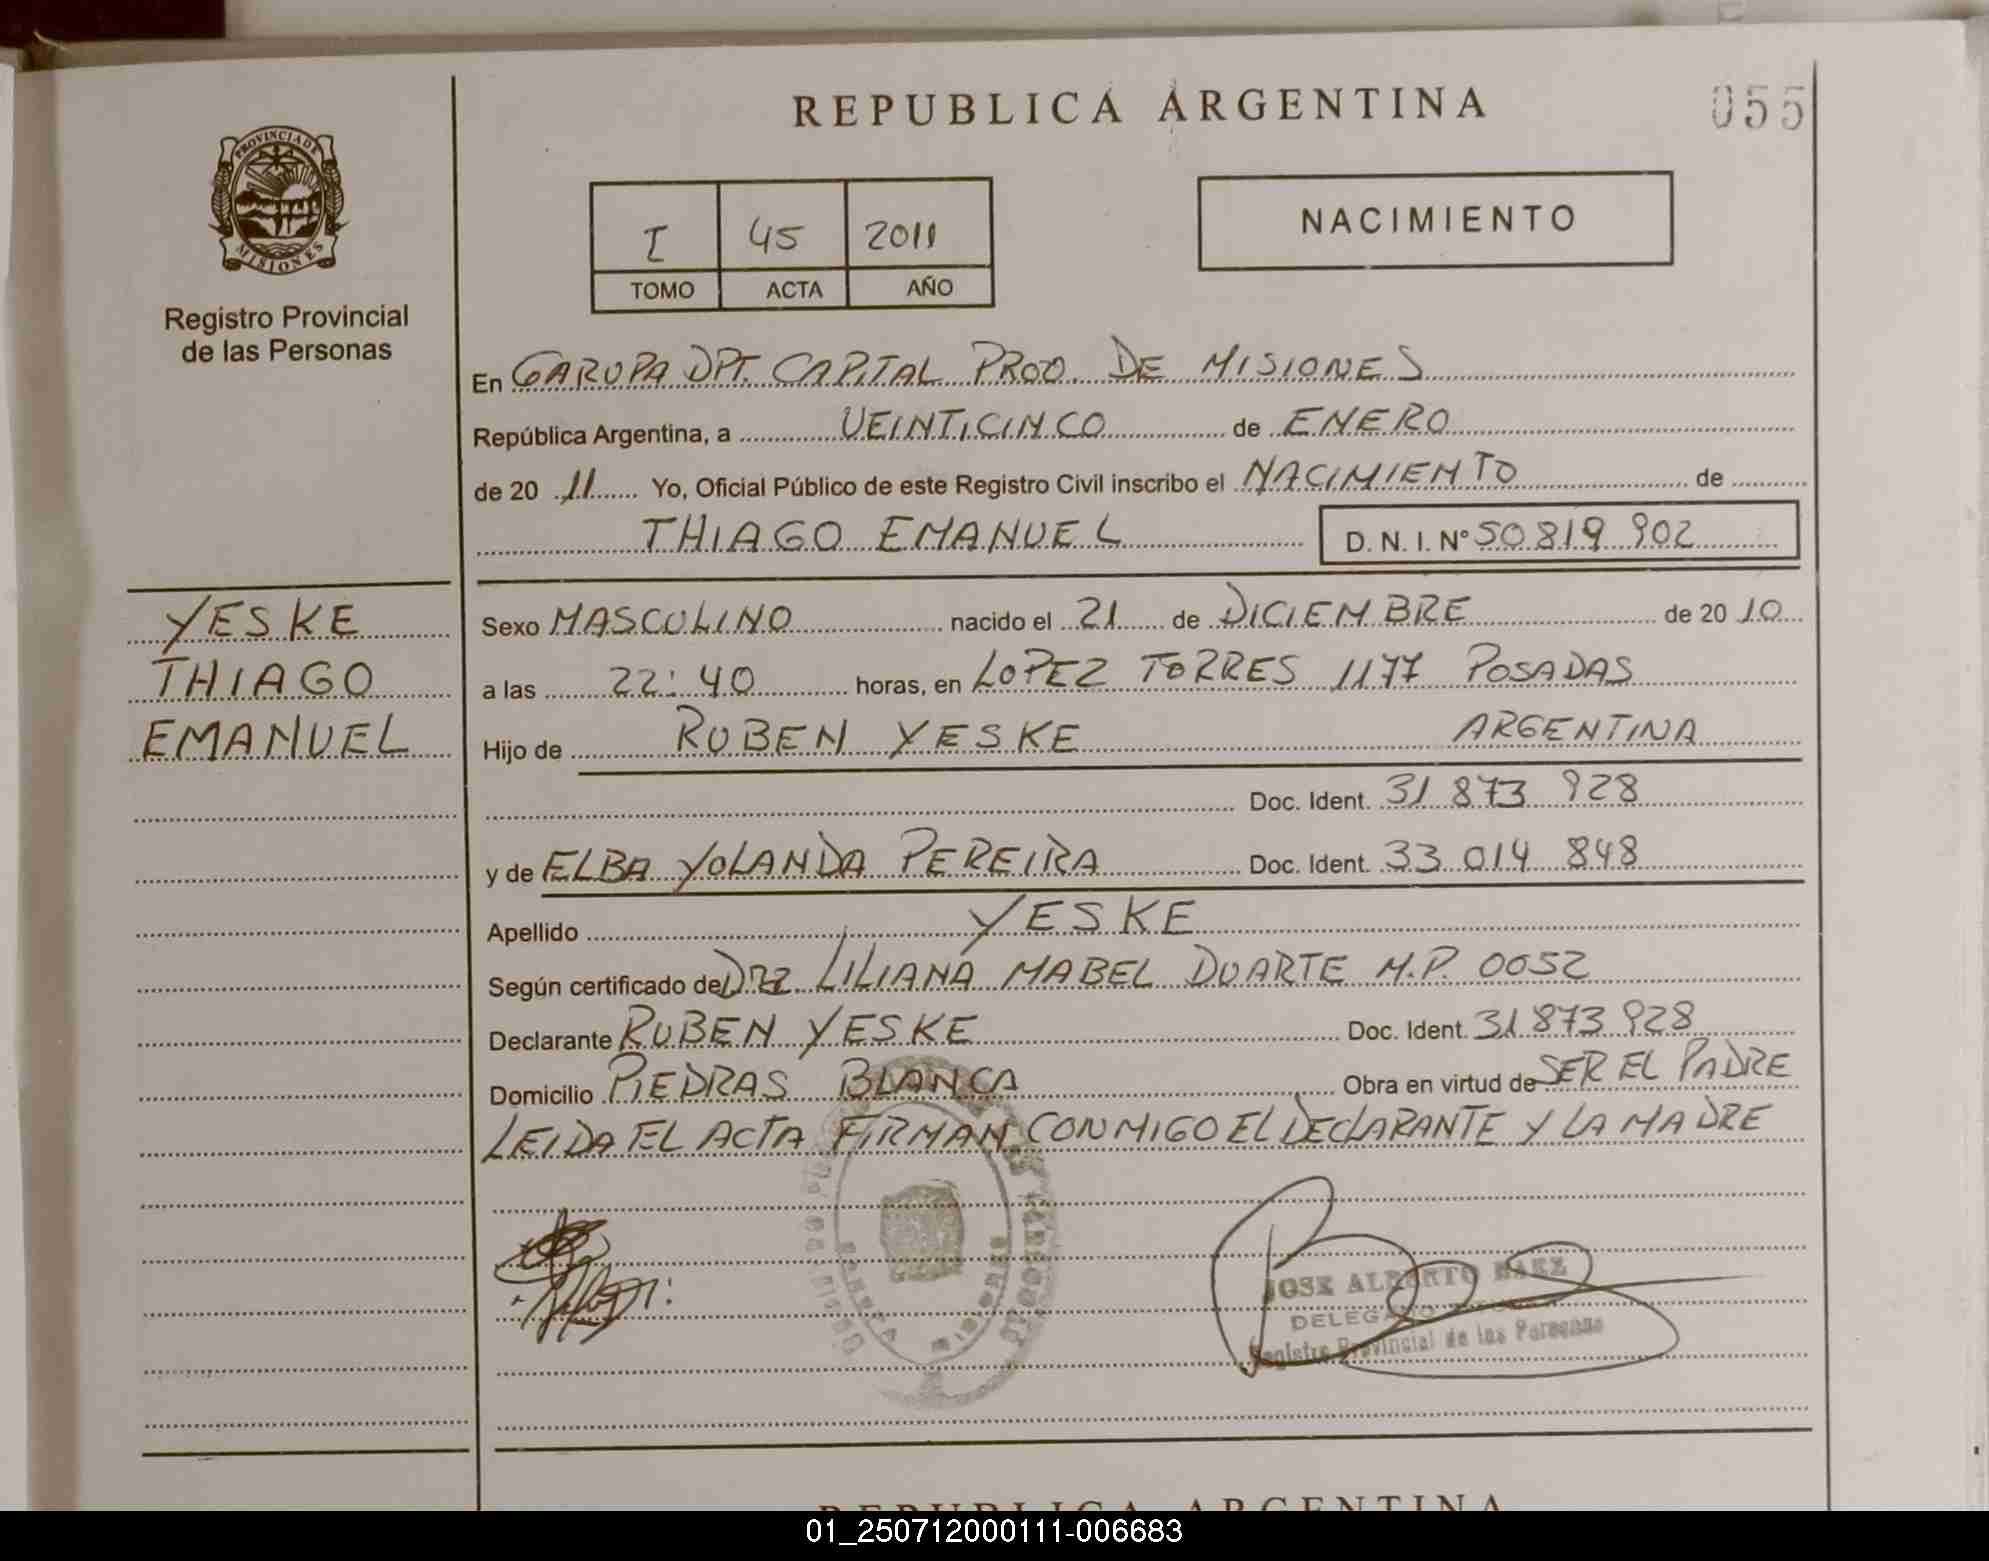 REPUBLICA ARGENTINA
055
PROVINCIA DE
MISIONES
Registro Provincial
de las Personas
I 45 2011
TOMO ACTA AÑO
NACIMIENTO
En GARUPA DPT. CAPITAL PROV. DE MISIONES
República Argentina, a VEINTICINCO de ENERO
de 20 11 Yo, Oficial Público de este Registro Civil inscribo el NACIMIENTO de
THIAGO EMANUEL D. N. I. Nº 50 819 902
YESKE
THIAGO
EMANUEL
Sexo MASCULINO nacido el 21 de DICIEMBRE de 20 10
a las 22:40 horas, en LOPEZ TORRES 1177 POSADAS
Hijo de RUBEN YESKE ARGENTINA
Doc. Ident. 31 873 928
y de ELBA YOLANDA PEREIRA Doc. Ident. 33 014 848
Apellido YESKE
Según certificado de Dra LILIANA MABEL DUARTE M.P. 0052
Declarante RUBEN YESKE Doc. Ident. 31 873 928
Domicilio PIEDRAS BLANCA Obra en virtud de SER EL PADRE
LEIDA EL ACTA FIRMAN CONMIGO EL DECLARANTE Y LA MADRE
JOSE ALBERTO BAEZ
DELEGADO
Registro Provincial de las Personas
REPUBLICA ARGENTINA
01_250712000111-006683